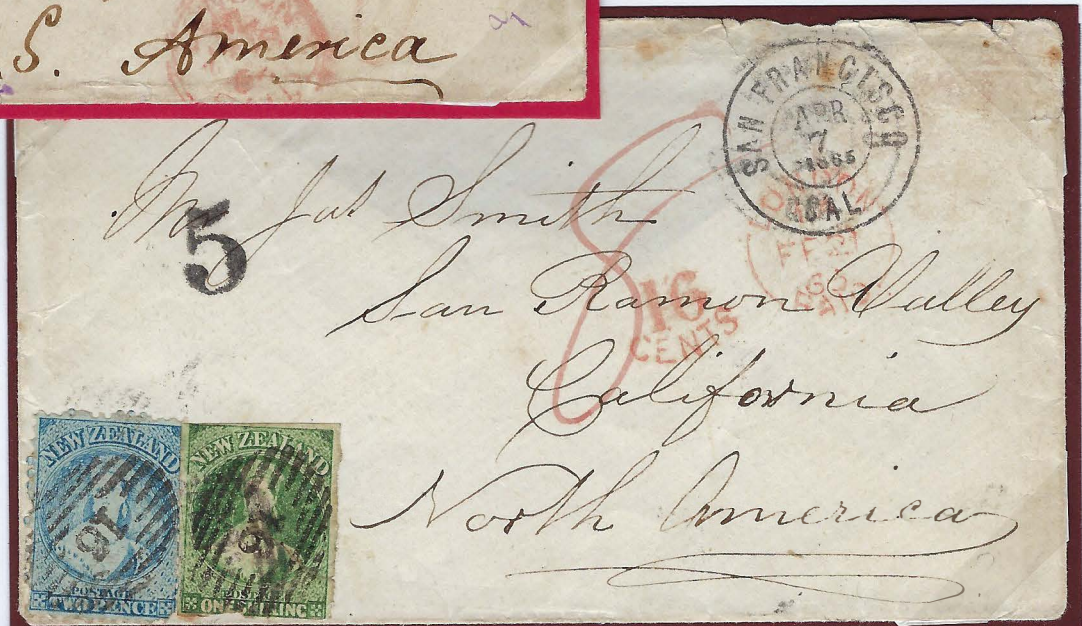 S. America
SAN FRANCISCO
APR
17
1865
CAL
LONDON
FE 21
65
PAID
Mr Jas Smith
5
8
16
CENTS
San Ramon Valley
California
North America
NEW ZEALAND
POSTAGE
TWO PENCE
NEW ZEALAND
POSTAGE
ONE SHILLING